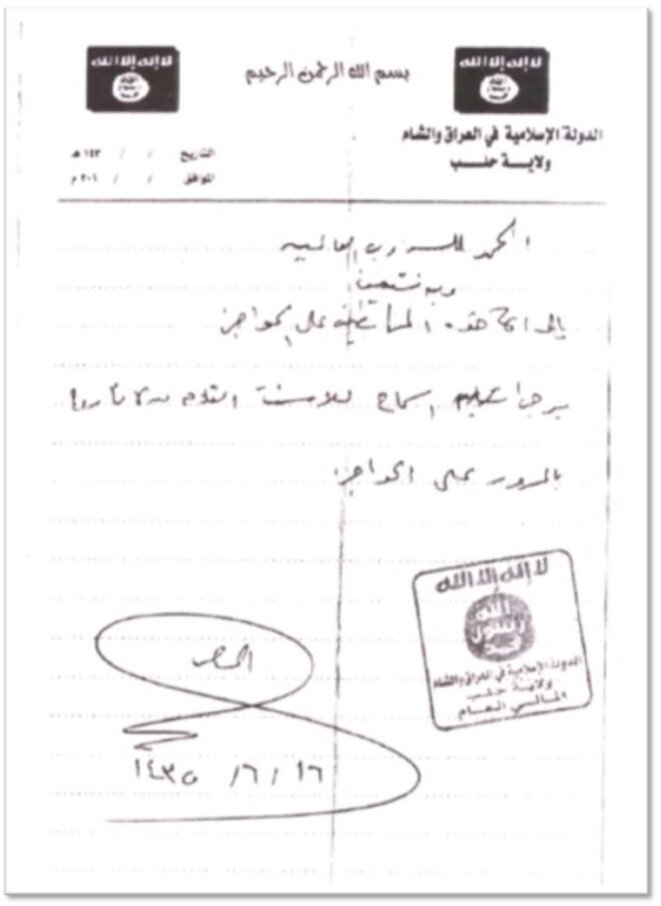 لا إله إلا الله
بسم الله الرحمن الرحيم
لا إله إلا الله
الدولة الإسلامية في العراق والشام
ولاية حلب
التاريخ / / ١٤٣ هـ
الموافق / / ٢٠١ م
الحمد لله رب العالمين
وبه نستعين
على الحواجز
يرجى السماح للاسمنت القادم من
بالمرور على الحواجز
لا إله إلا الله
الله
رسول
الدولة الإسلامية في العراق والشام
ولاية حلب
المالي العام
١٦ / ٦ / ١٤٣٥